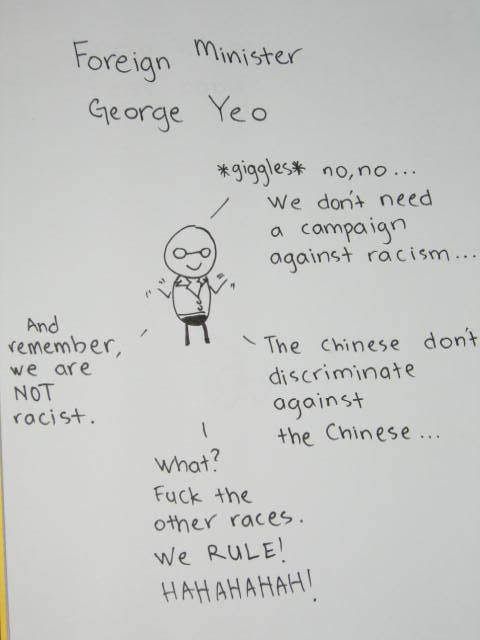 Foreign Minister
George Yeo
*giggles* no, no...
We don't need
a campaign
against racism...
The Chinese don't
discriminate
against
the Chinese...
What?
Fuck the
other races.
We RULE!
HAHAHAHAH!
And
remember,
we are
NOT
racist.